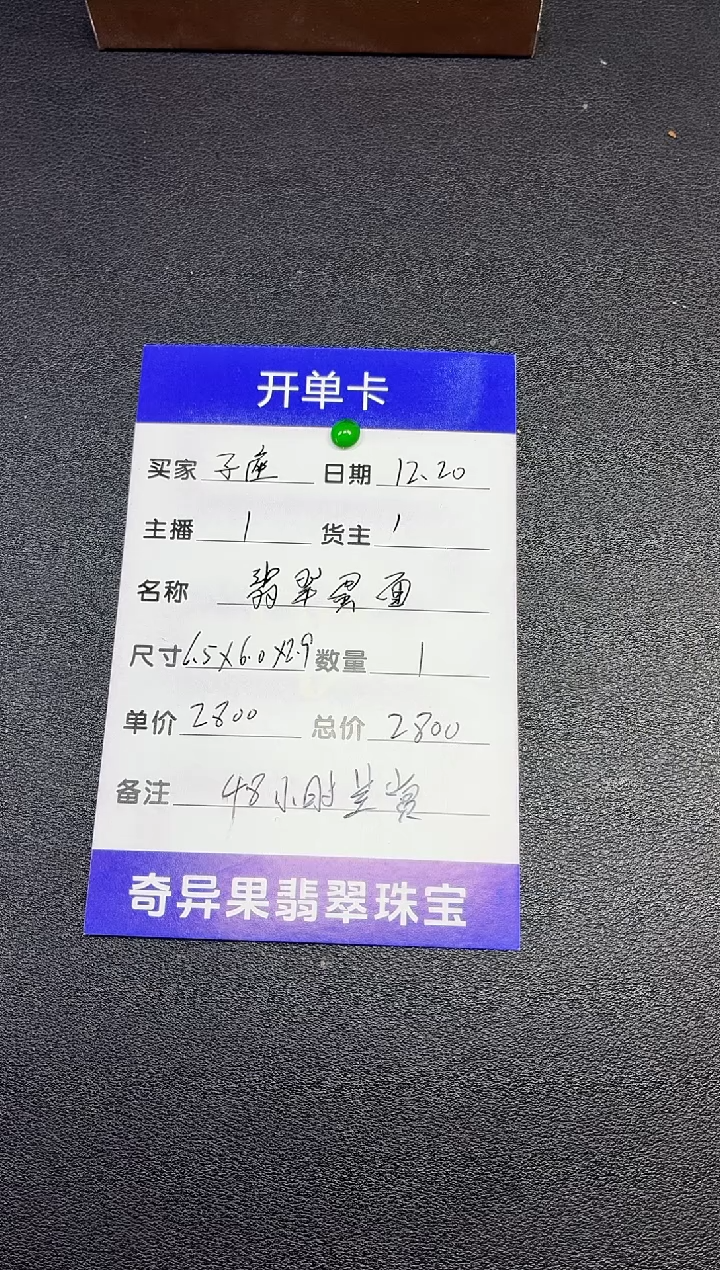 开单卡
买家 子座 日期 12.20
主播 1 货主 1
名称 翡翠蛋面
尺寸 6.5X6.0X2.9 数量 1
单价 2800 总价 2800
备注 48小时
奇异果翡翠珠宝